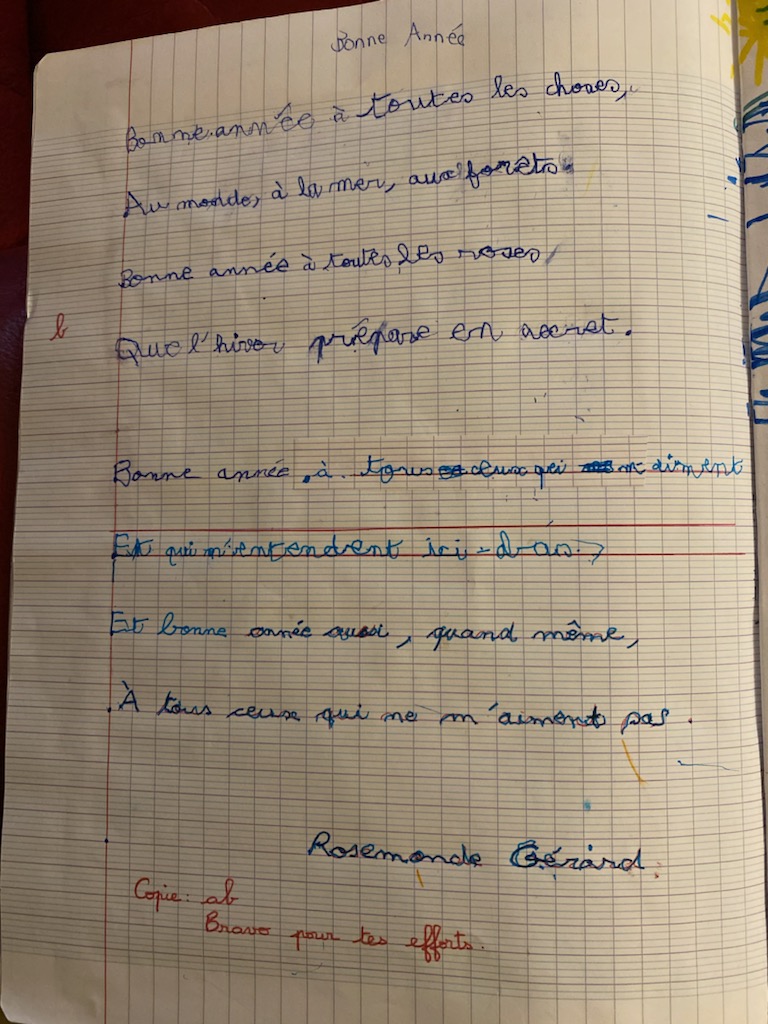 Bonne Année
Bonne année à toutes les choses,
Au monde, à la mer, aux forêts.
Bonne année à toutes les roses,
Que l'hiver prépare en secret.
b
Bonne année à tous ceux qui m'aiment
Et qui m'entendent ici-bas.
Et bonne année aussi, quand même,
À tous ceux qui ne m'aiment pas.
Rosemonde Gérard.
Copie: ab
Bravo pour tes efforts.